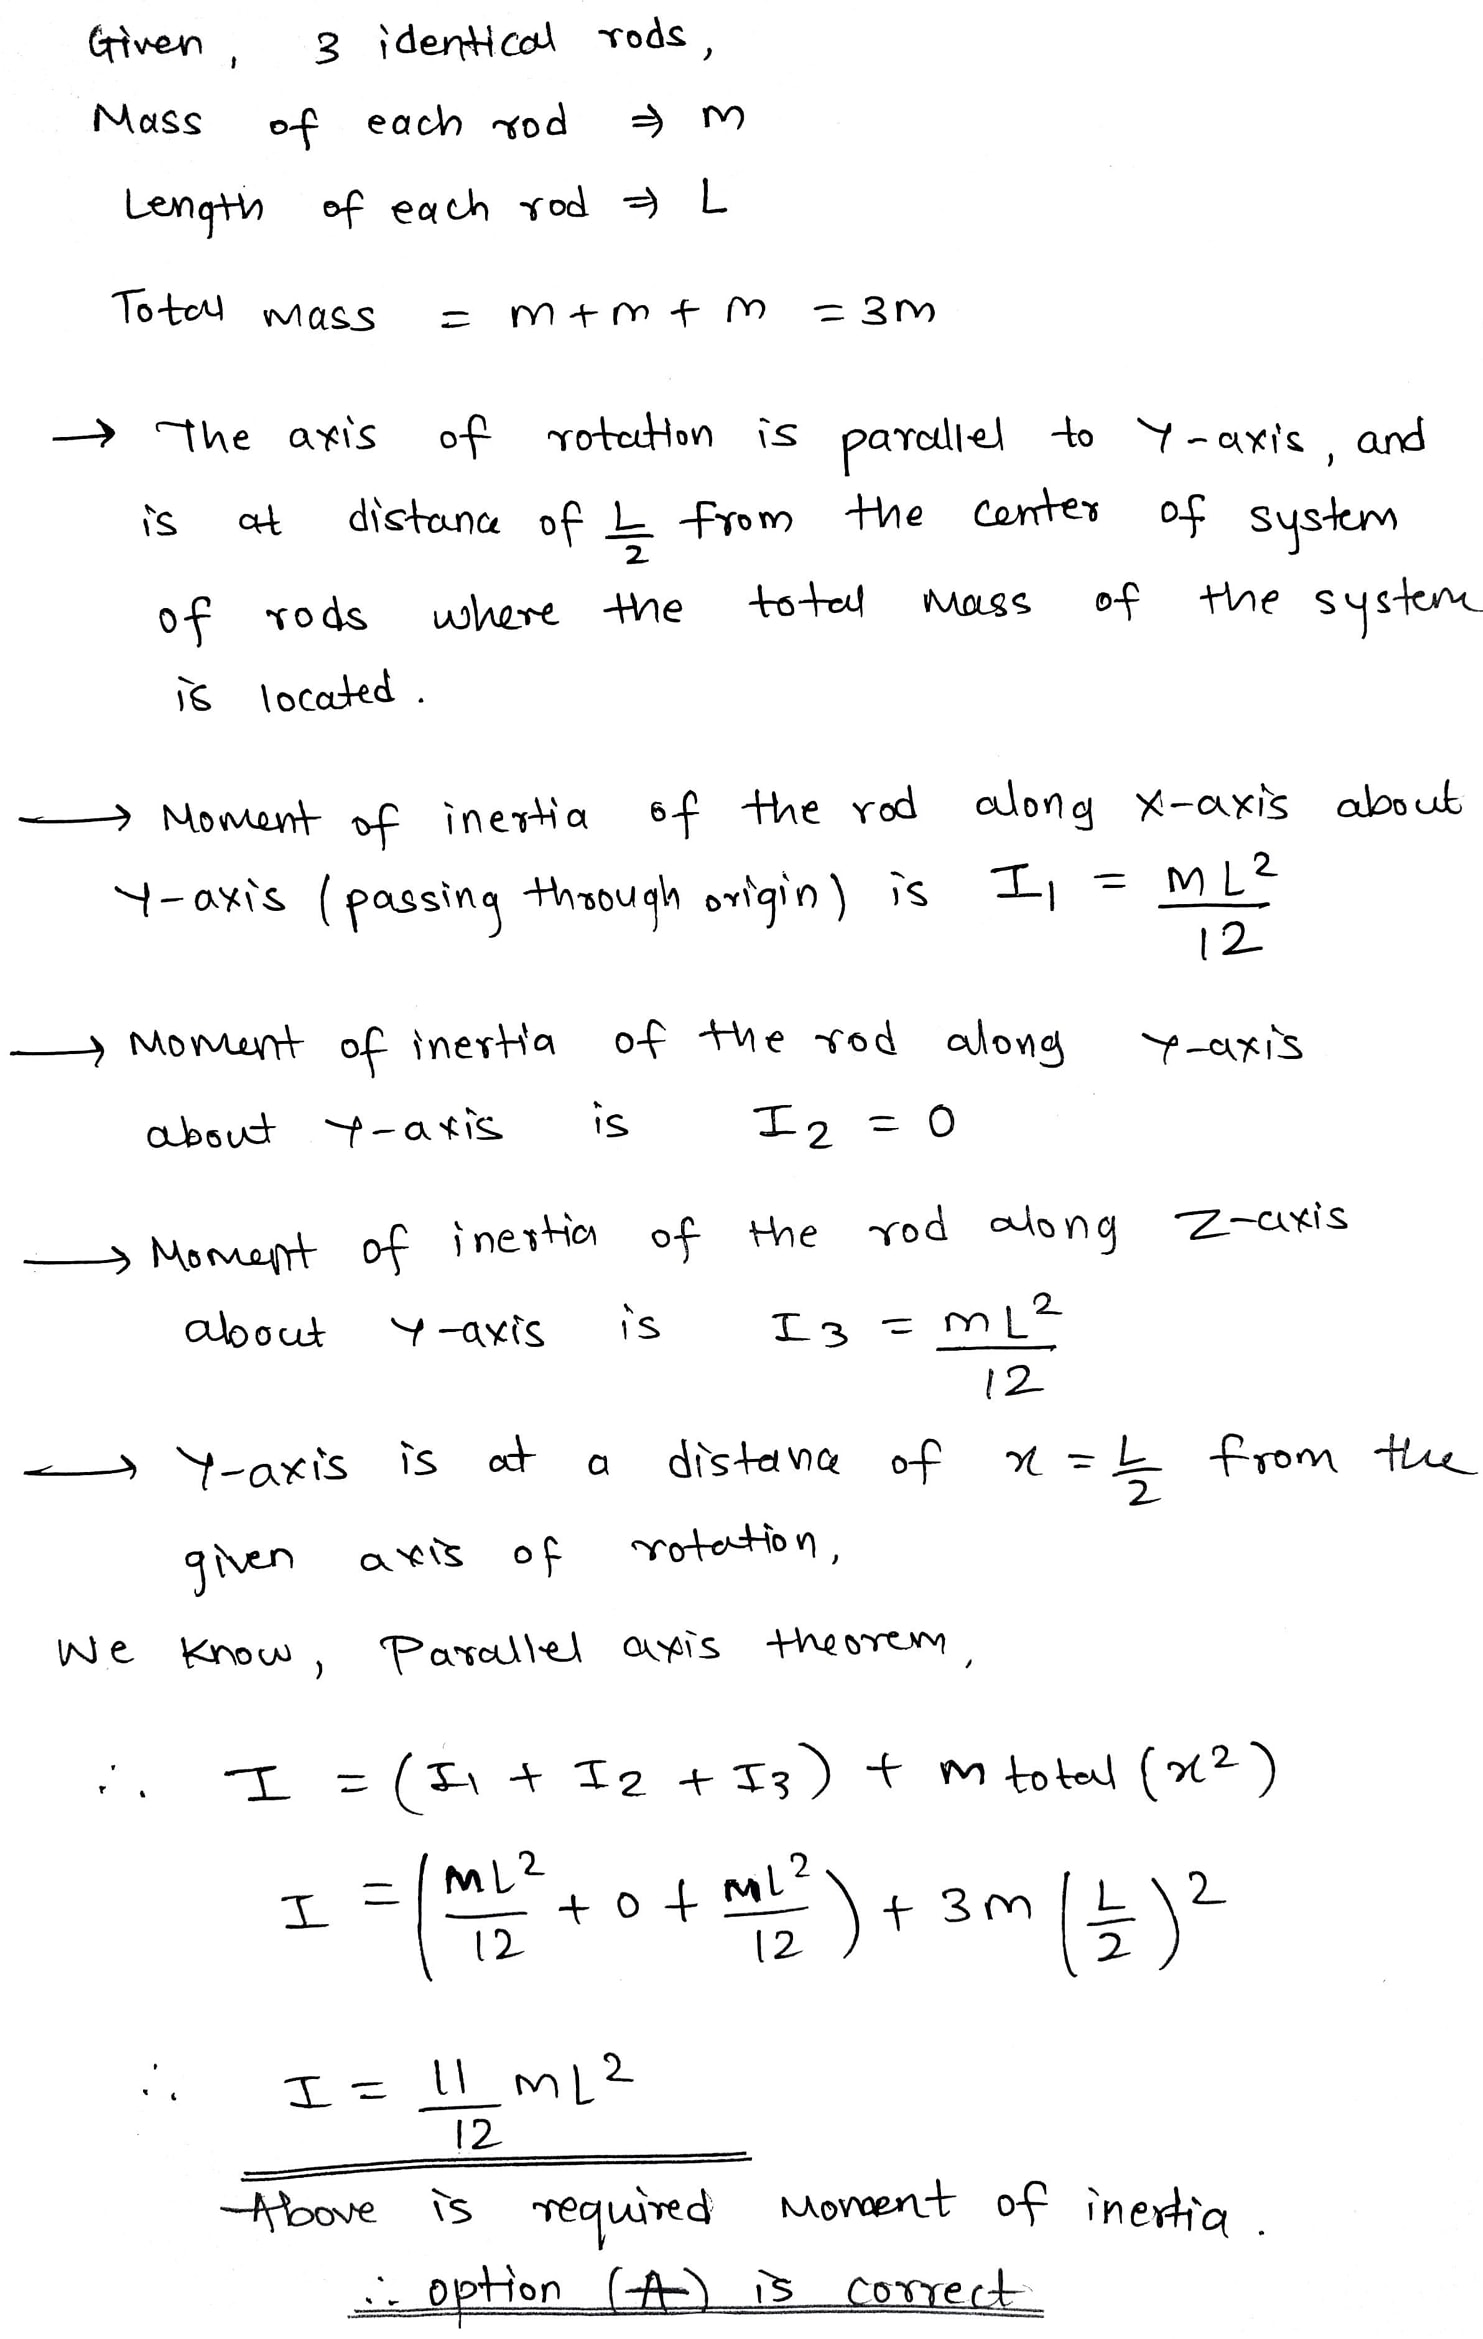 Given, 3 identical rods,
Mass of each rod ⇒ m
Length of each rod ⇒ L
Total mass = m + m + m = 3m
→ The axis of rotation is parallel to Y-axis, and
is at distance of L/2 from the center of system
of rods where the total mass of the system
is located.
→ Moment of inertia of the rod along X-axis about
Y-axis (passing through origin) is I₁ = ML²/12
→ Moment of inertia of the rod along Y-axis
about Y-axis is I₂ = 0
→ Moment of inertia of the rod along Z-axis
about Y-axis is I₃ = mL²/12
→ Y-axis is at a distance of x = L/2 from the
given axis of rotation,
We know, Parallel axis theorem,
∴ I = (I₁ + I₂ + I₃) + m total (x²)
I = (ML²/12 + 0 + ML²/12) + 3m (L/2)²
∴ I = 11/12 mL²
Above is required Moment of inertia.
∴ option (A) is correct